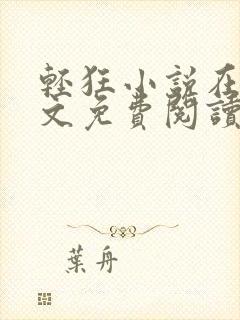 輕狂小說在
文免費閱讀
葉舟